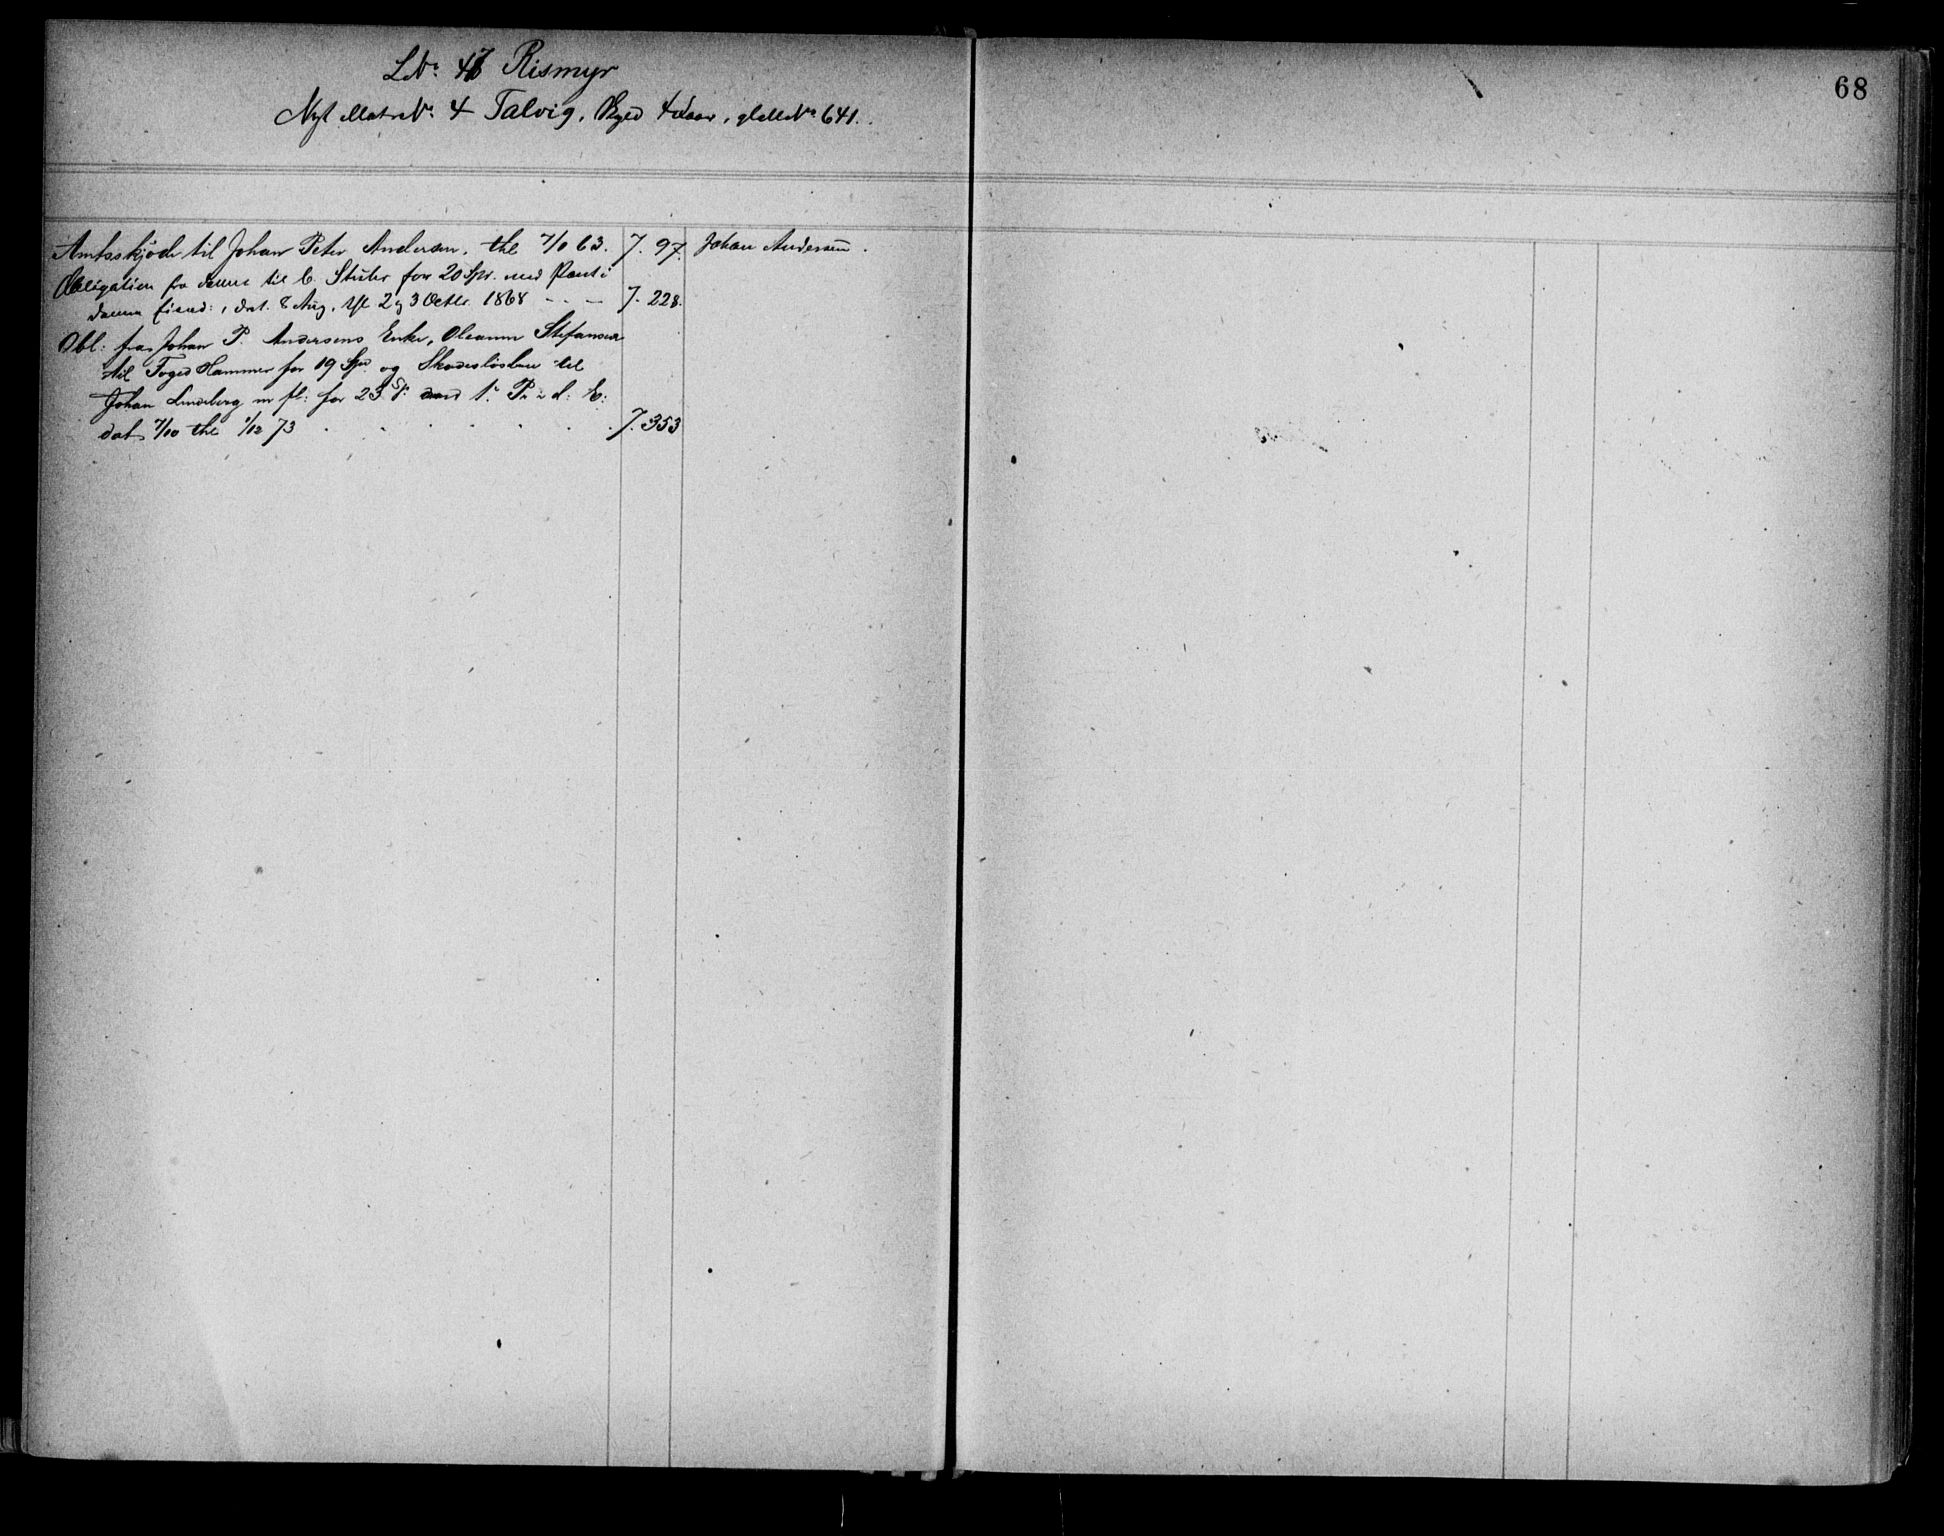 68
LNr. 47 Rismyr
Nyt MatreNr. 4 Talvig, Skyld 4 Daar, glMNr. 641.
Amtsskjøde til Johan Peter Andersen, thl 7/10 63. 7. 97. Johan Andersen.
Obligation fra denne til C. Stuter for 20 Spr. med Pant i
denne Eiend:, dat. 8 Aug, thl 2 og 3 Octbr. 1868 - - - 7. 228.
Obl: fra Johan P. Andersens Enke, Oleanna Stefansen
til Foged Hammer for 19 Spd og Skadesløsbrev til
Johan Lindberg m fl: for 23 Sp: med 1. Pr i d: E:
dat 7/10 thl 1/12 73 . . . . . . . 7. 353